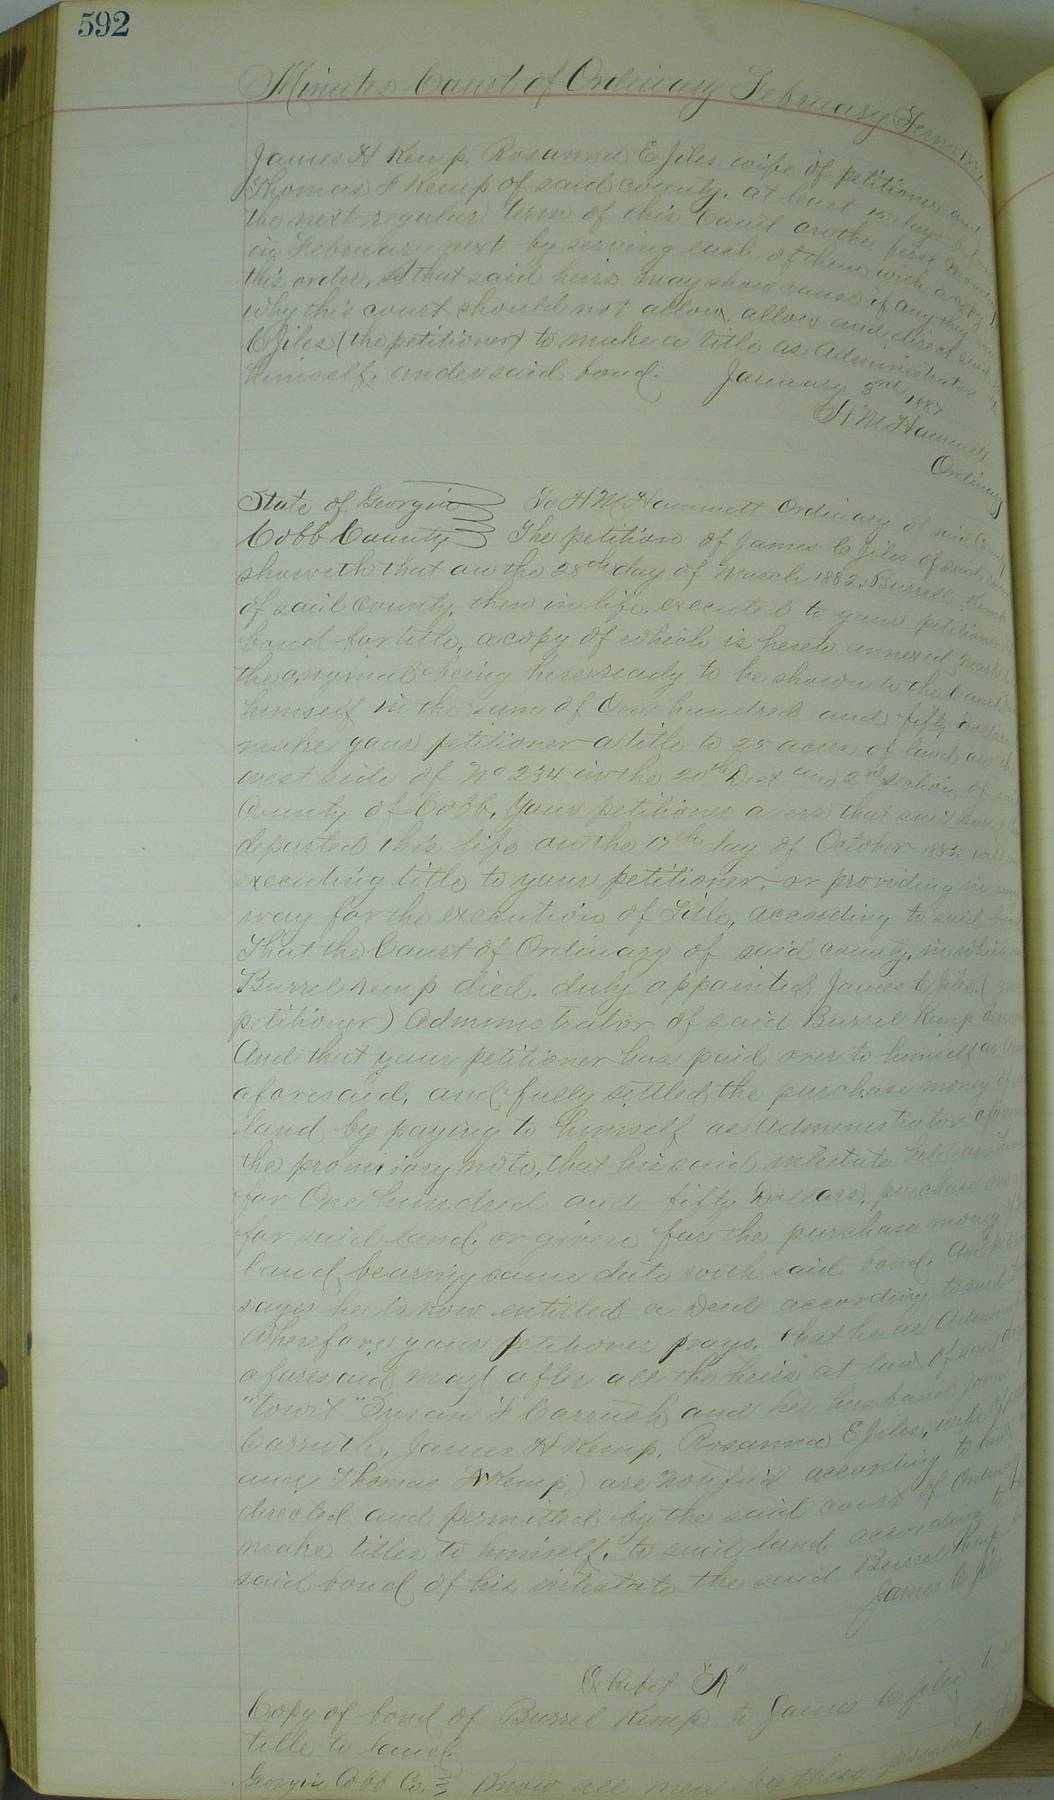 592
Minutes Court of Ordinary February Term
James H Kemp, Rosanna E Jiles wife of petitioner and
Thomas F Kemp of said county, at least 15 days before
the next regular term of this Court on the first Monday
in February next by serving each of them with a copy
this order, so that said heirs may show cause if any they
why this court should not allow, allow and direct said
C Jiles (the petitioner) to make a title as Administrator
himself, under said bond. January 3rd 1887
H M Hammett
Ordinary
State of Georgia To H M Hammett Ordinary of said County
Cobb County The petition of James C Jiles of said
sheweth that on the 28th day of March 1882 Burrell Kemp
of said County, then in life, executed to your petitioner
bond for title, a copy of which is hereto annexed
the original being here ready to be shown to the Court
himself in the sum of One hundred and fifty Dollars
make your petitioner a title to 25 acres of land on
west side of No 234 in the 20th Dist and 2nd Section of
County of Cobb, Your petitioner avers that said
departed this life on the day of October
executing title to your petitioner, or providing in any
way for the execution of Title, according to said bond
That the Court of Ordinary of said county, in which
Burrel Kemp died, duly appointed James C Jiles (
petitioner) Administrator of said Burrel Kemp
And that your petitioner has paid over to himself as
aforesaid, and fully settled the purchase money of
land by paying to himself as Administrator
the promisory note, that his said intestate held
for One hundred and fifty Dollars, purchase
for said land, or given for the purchase money
land, bearing same date with said bond. And
says he is now entitled a Deed according to said
Wherefore your petitioner prays, that he as
aforesaid may (after all the heirs at law of said
"towit" Susan F Carruth and her husband
Carruth, James H Kemp, Rosanna E Jiles, wife of
and Thomas F Kemp) are notified according to law
directed and permitted by the said court of Ordinary
make titles to himself, to said land according to
said bond of his intestate the said Burrel Kemp
James C Jiles
Exhibit "A"
Copy of bond of Burrel Kemp to James C Jiles
title to land.
Georgia Cobb Co. Know all men by these presents